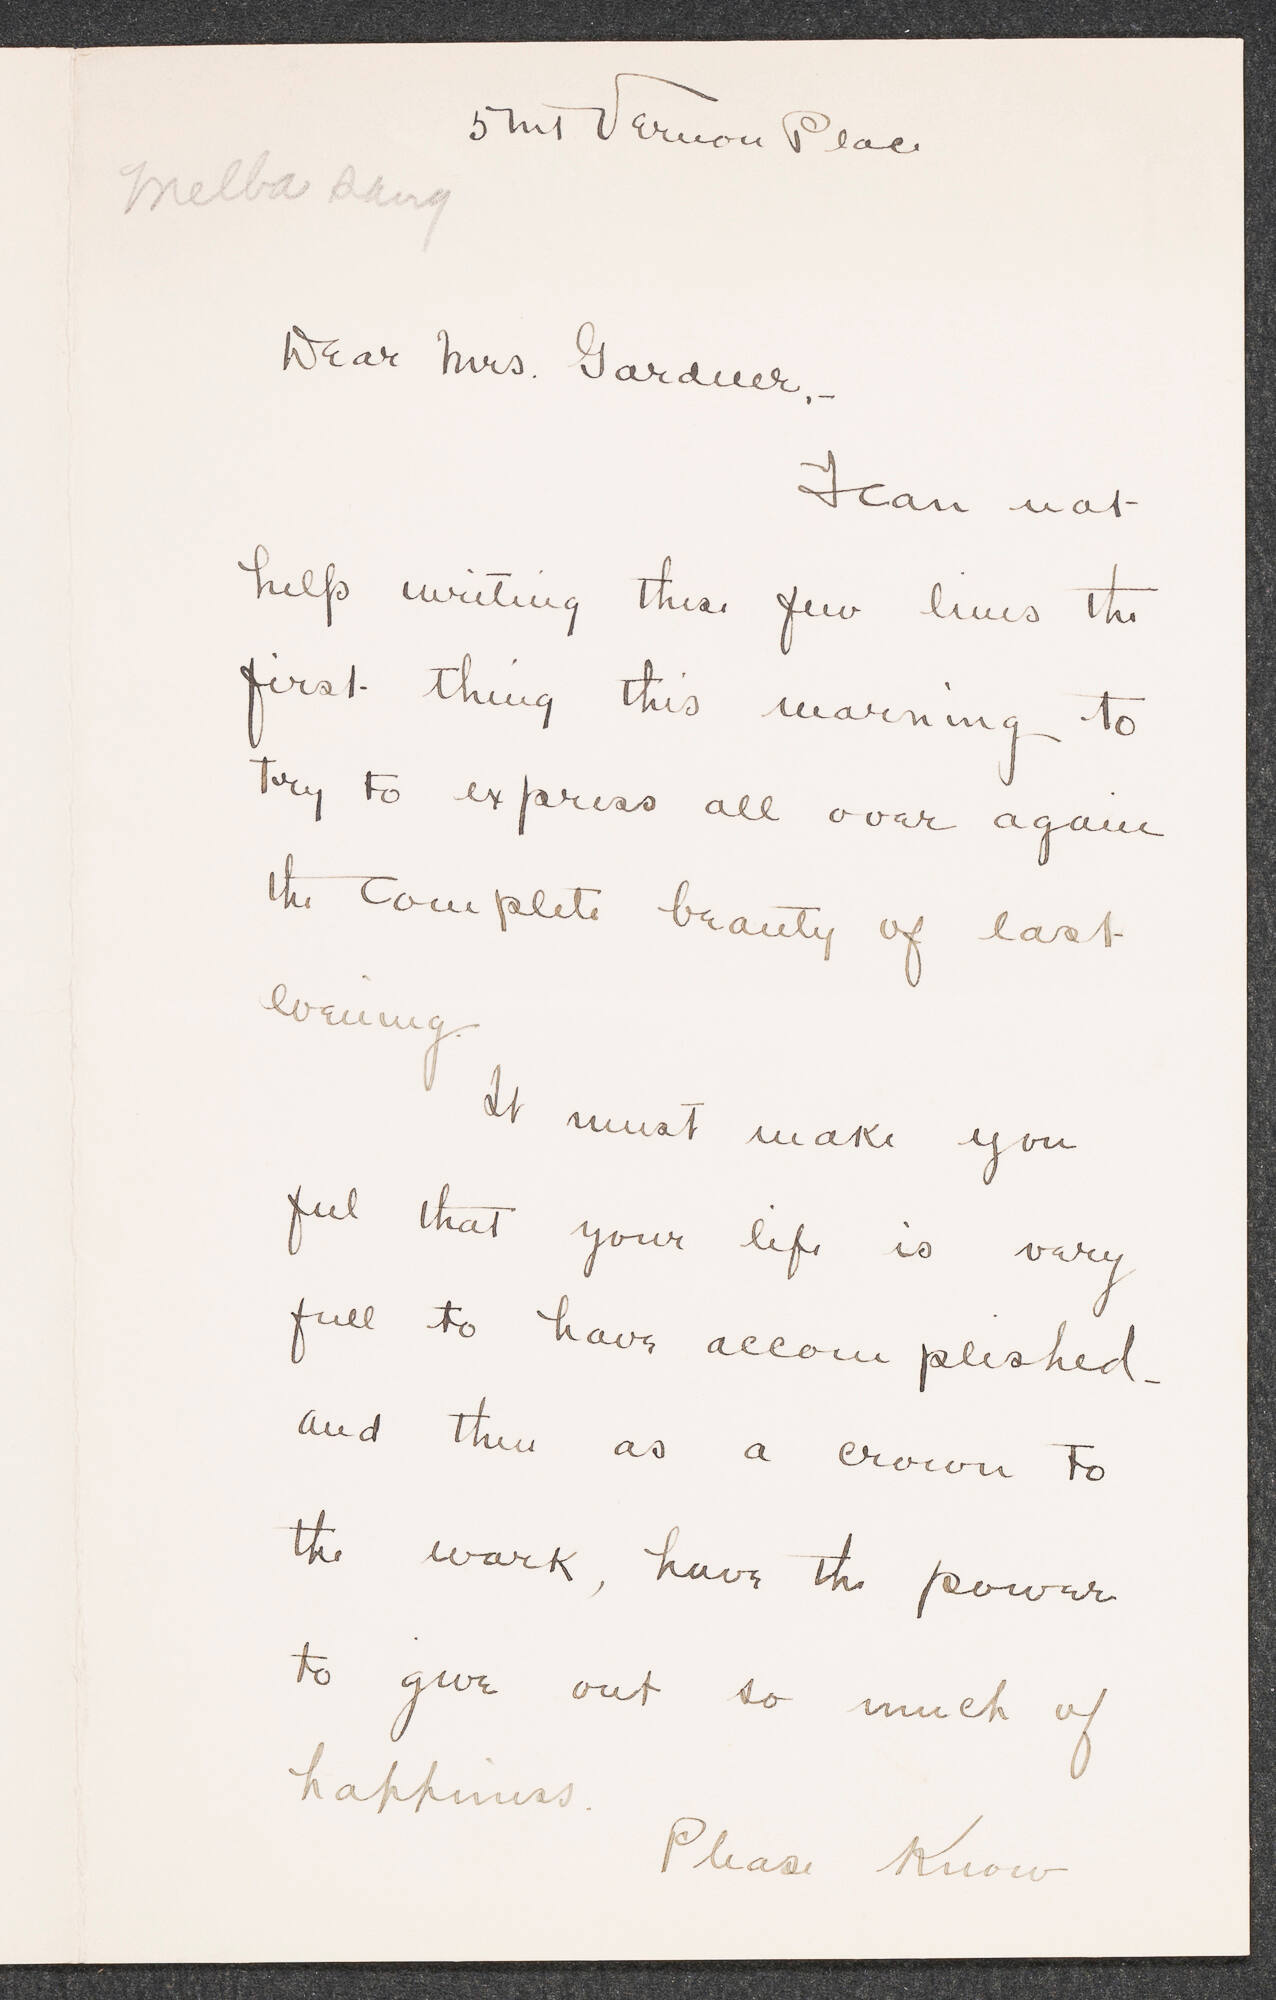 5 Mt Vernon Place
Melba sang
Dear Mrs. Gardner,-
I can not
help writing these few lines the
first thing this morning to
try to express all over again
the complete beauty of last
evening.
It must make you
feel that your life is very
full to have accomplished-
and then as a crown to
the work, have the power
to give out so much of
happiness.
Please Know